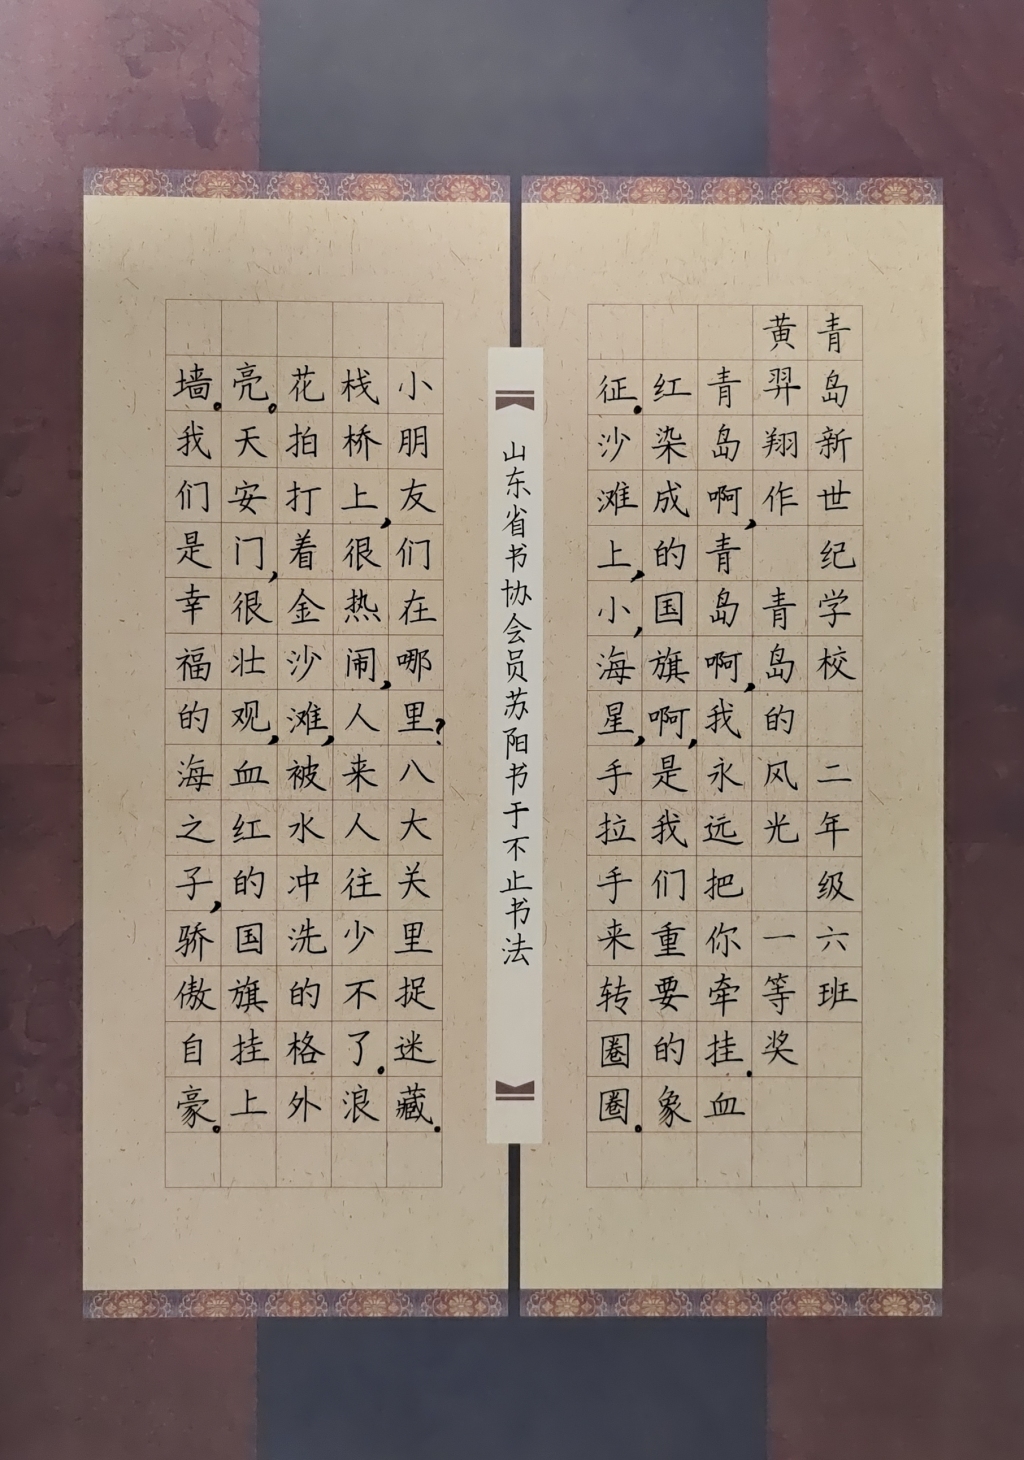 青岛新世纪学校 二年级六班
黄羿翔作 青岛的风光 一等奖
青岛啊,青岛啊,我永远把你牵挂.血
红染成的国旗啊,是我们重要的象
征.沙滩上,小,海星,手拉手来转圈圈.
山东省书协会员苏阳书于不止书法
小朋友们在哪里?八大关里捉迷藏.
栈桥上,很热闹,人来人往少不了.浪
花拍打着金沙滩,被水冲洗的格外
亮。天安门,很壮观,血红的国旗挂上
墙。我们是幸福的海之子,骄傲自豪。